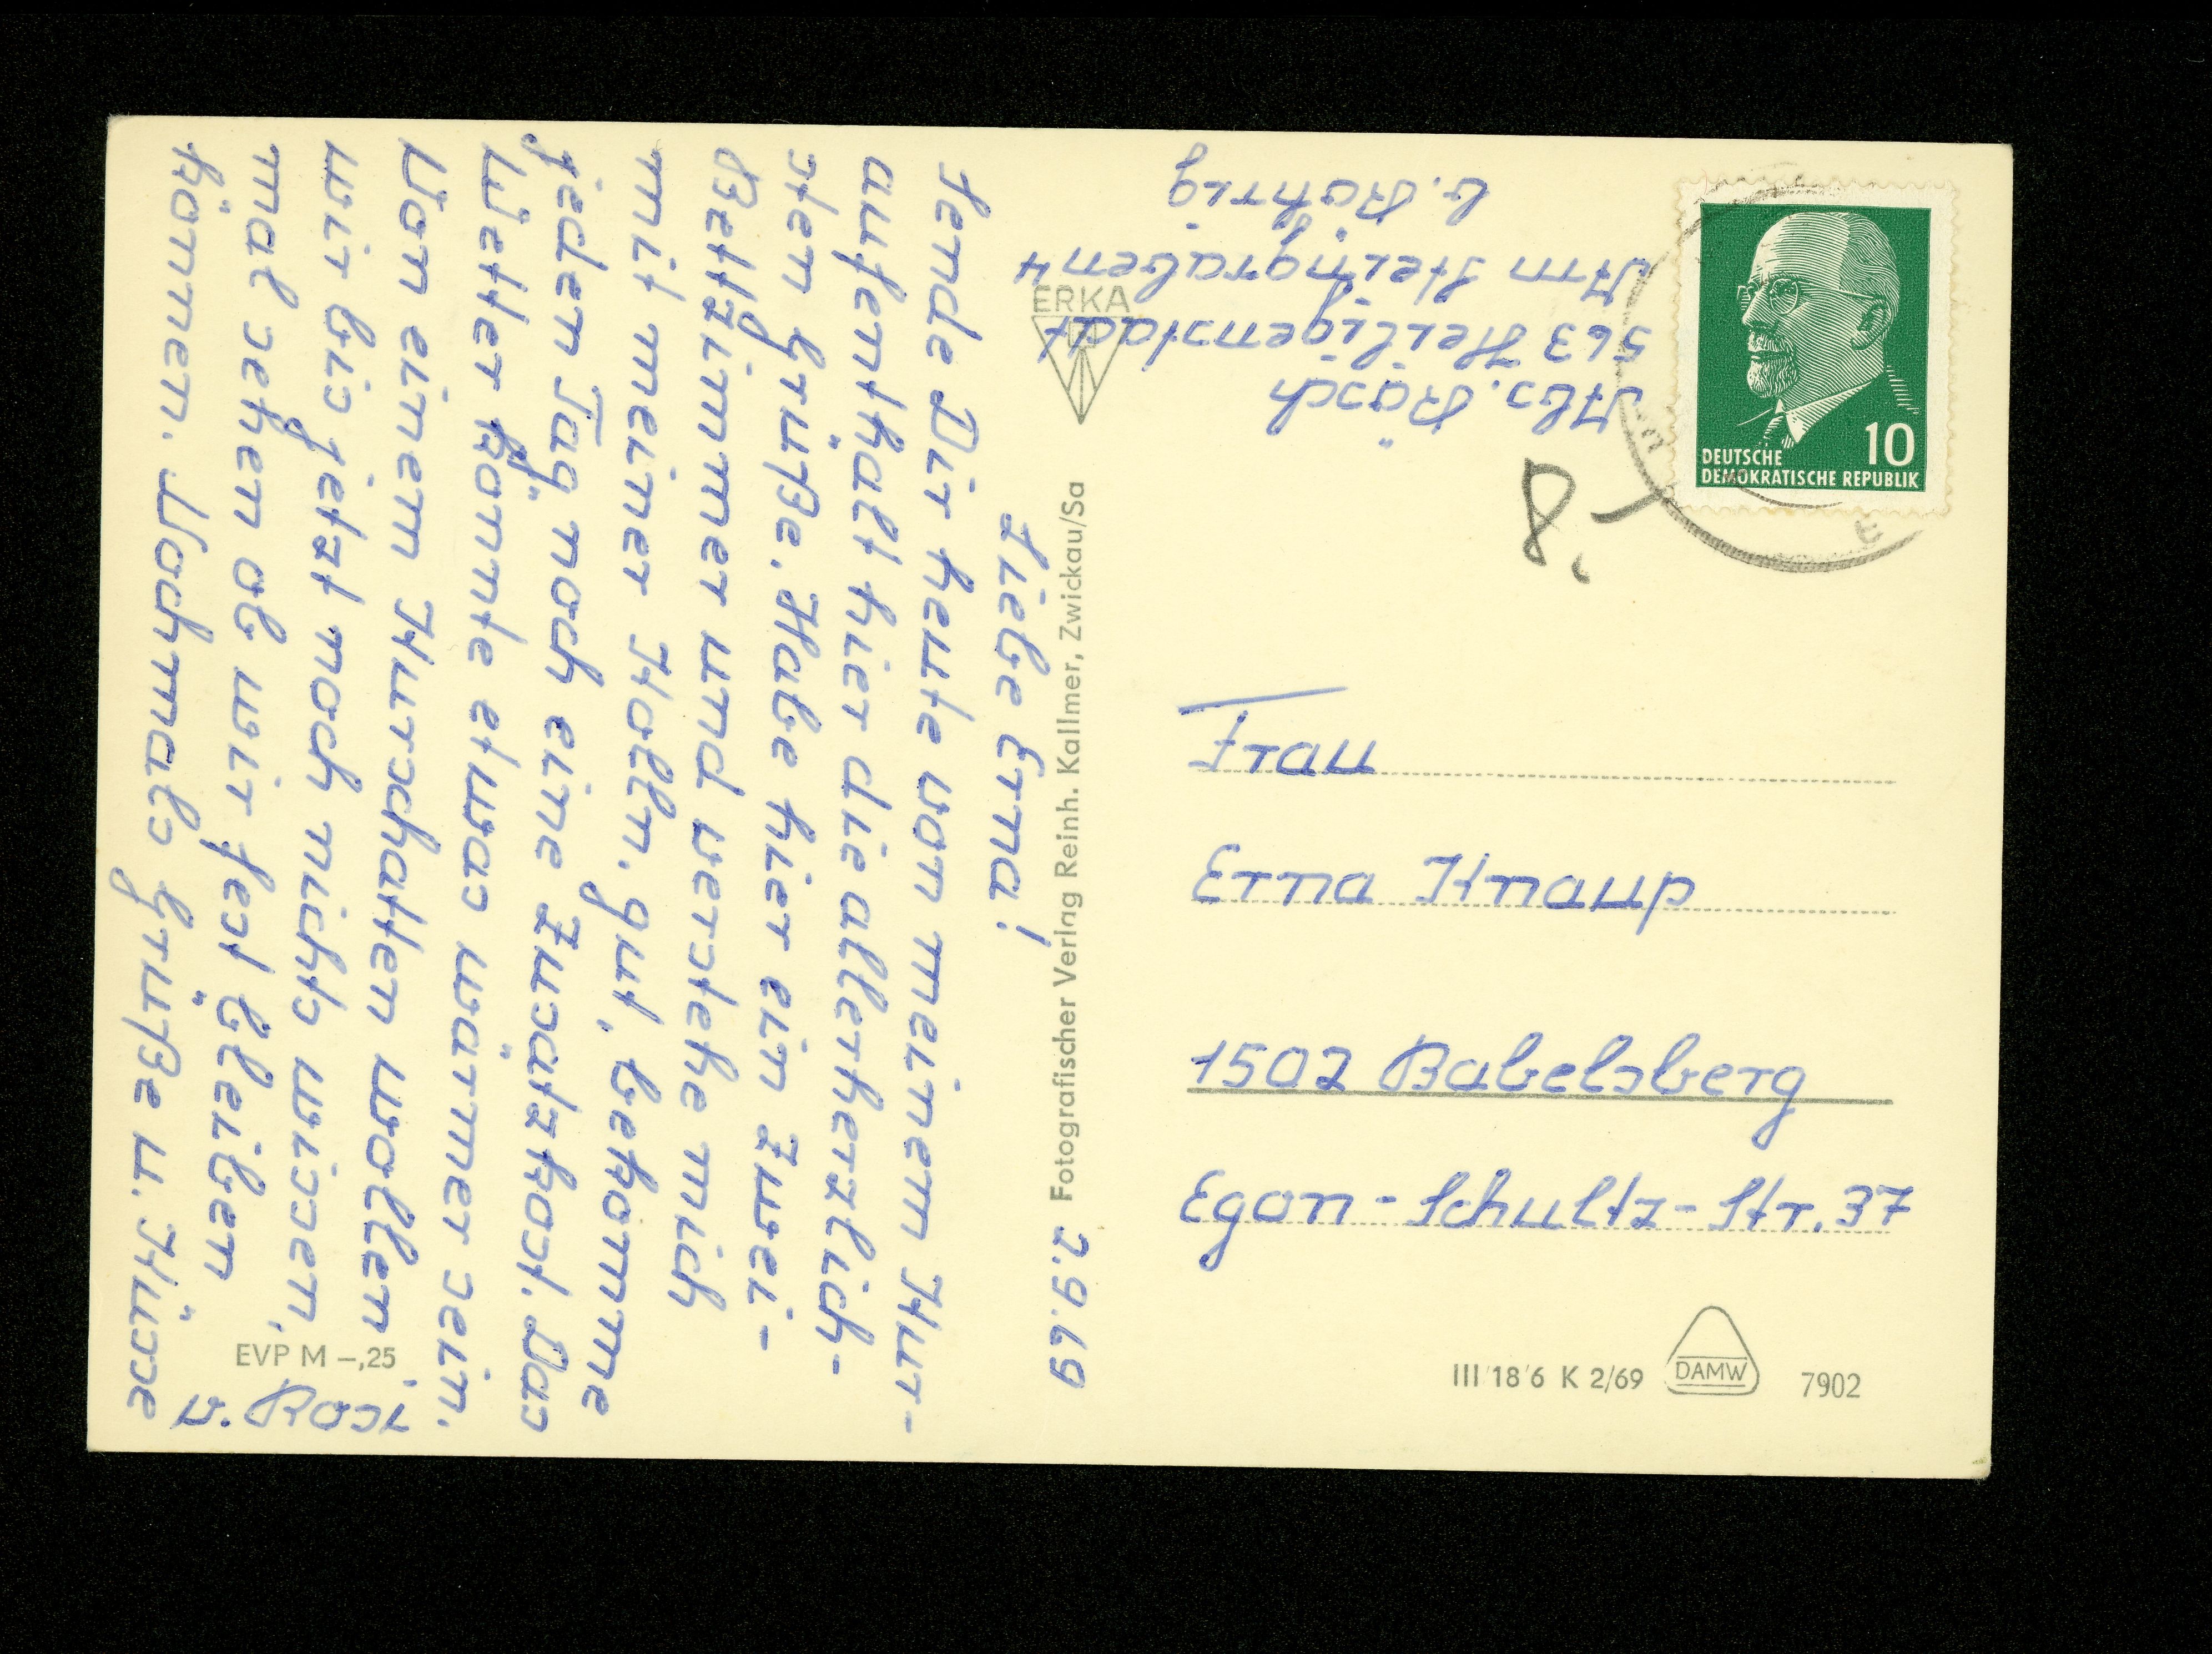 Liebe Erna!
Sende Dir heute von meinem Kur-
aufenthalt hier die allerherzlich-
sten Grüße. Habe hier ein Zwei-
Bettzimmer und verstehe mich
mit meiner Kolln. gut, bekomme
jeden Tag noch eine Zusatzkost. Das
Wetter könnte etwas wärmer sein.
Von einem Kurschatten wollen
wir bis jetzt noch nichts wissen,
mal sehen ob wir fest bleiben
können. Nochmals Grüße u. Küsse
2.9.69
Abs. Räsch
563 Heiligenstadt
Am Steingraben 4
b. Röhrig
ERKA
Fotografischer Verlag Reinh. Kallmer, Zwickau/Sa
DEUTSCHE
DEMOKRATISCHE REPUBLIK
10
Frau
Erna Knaup
1502 Babelsberg
Egon-Schultz-Str. 37
EVP M –,25
III 18 6 K 2/69
DAMW
7902